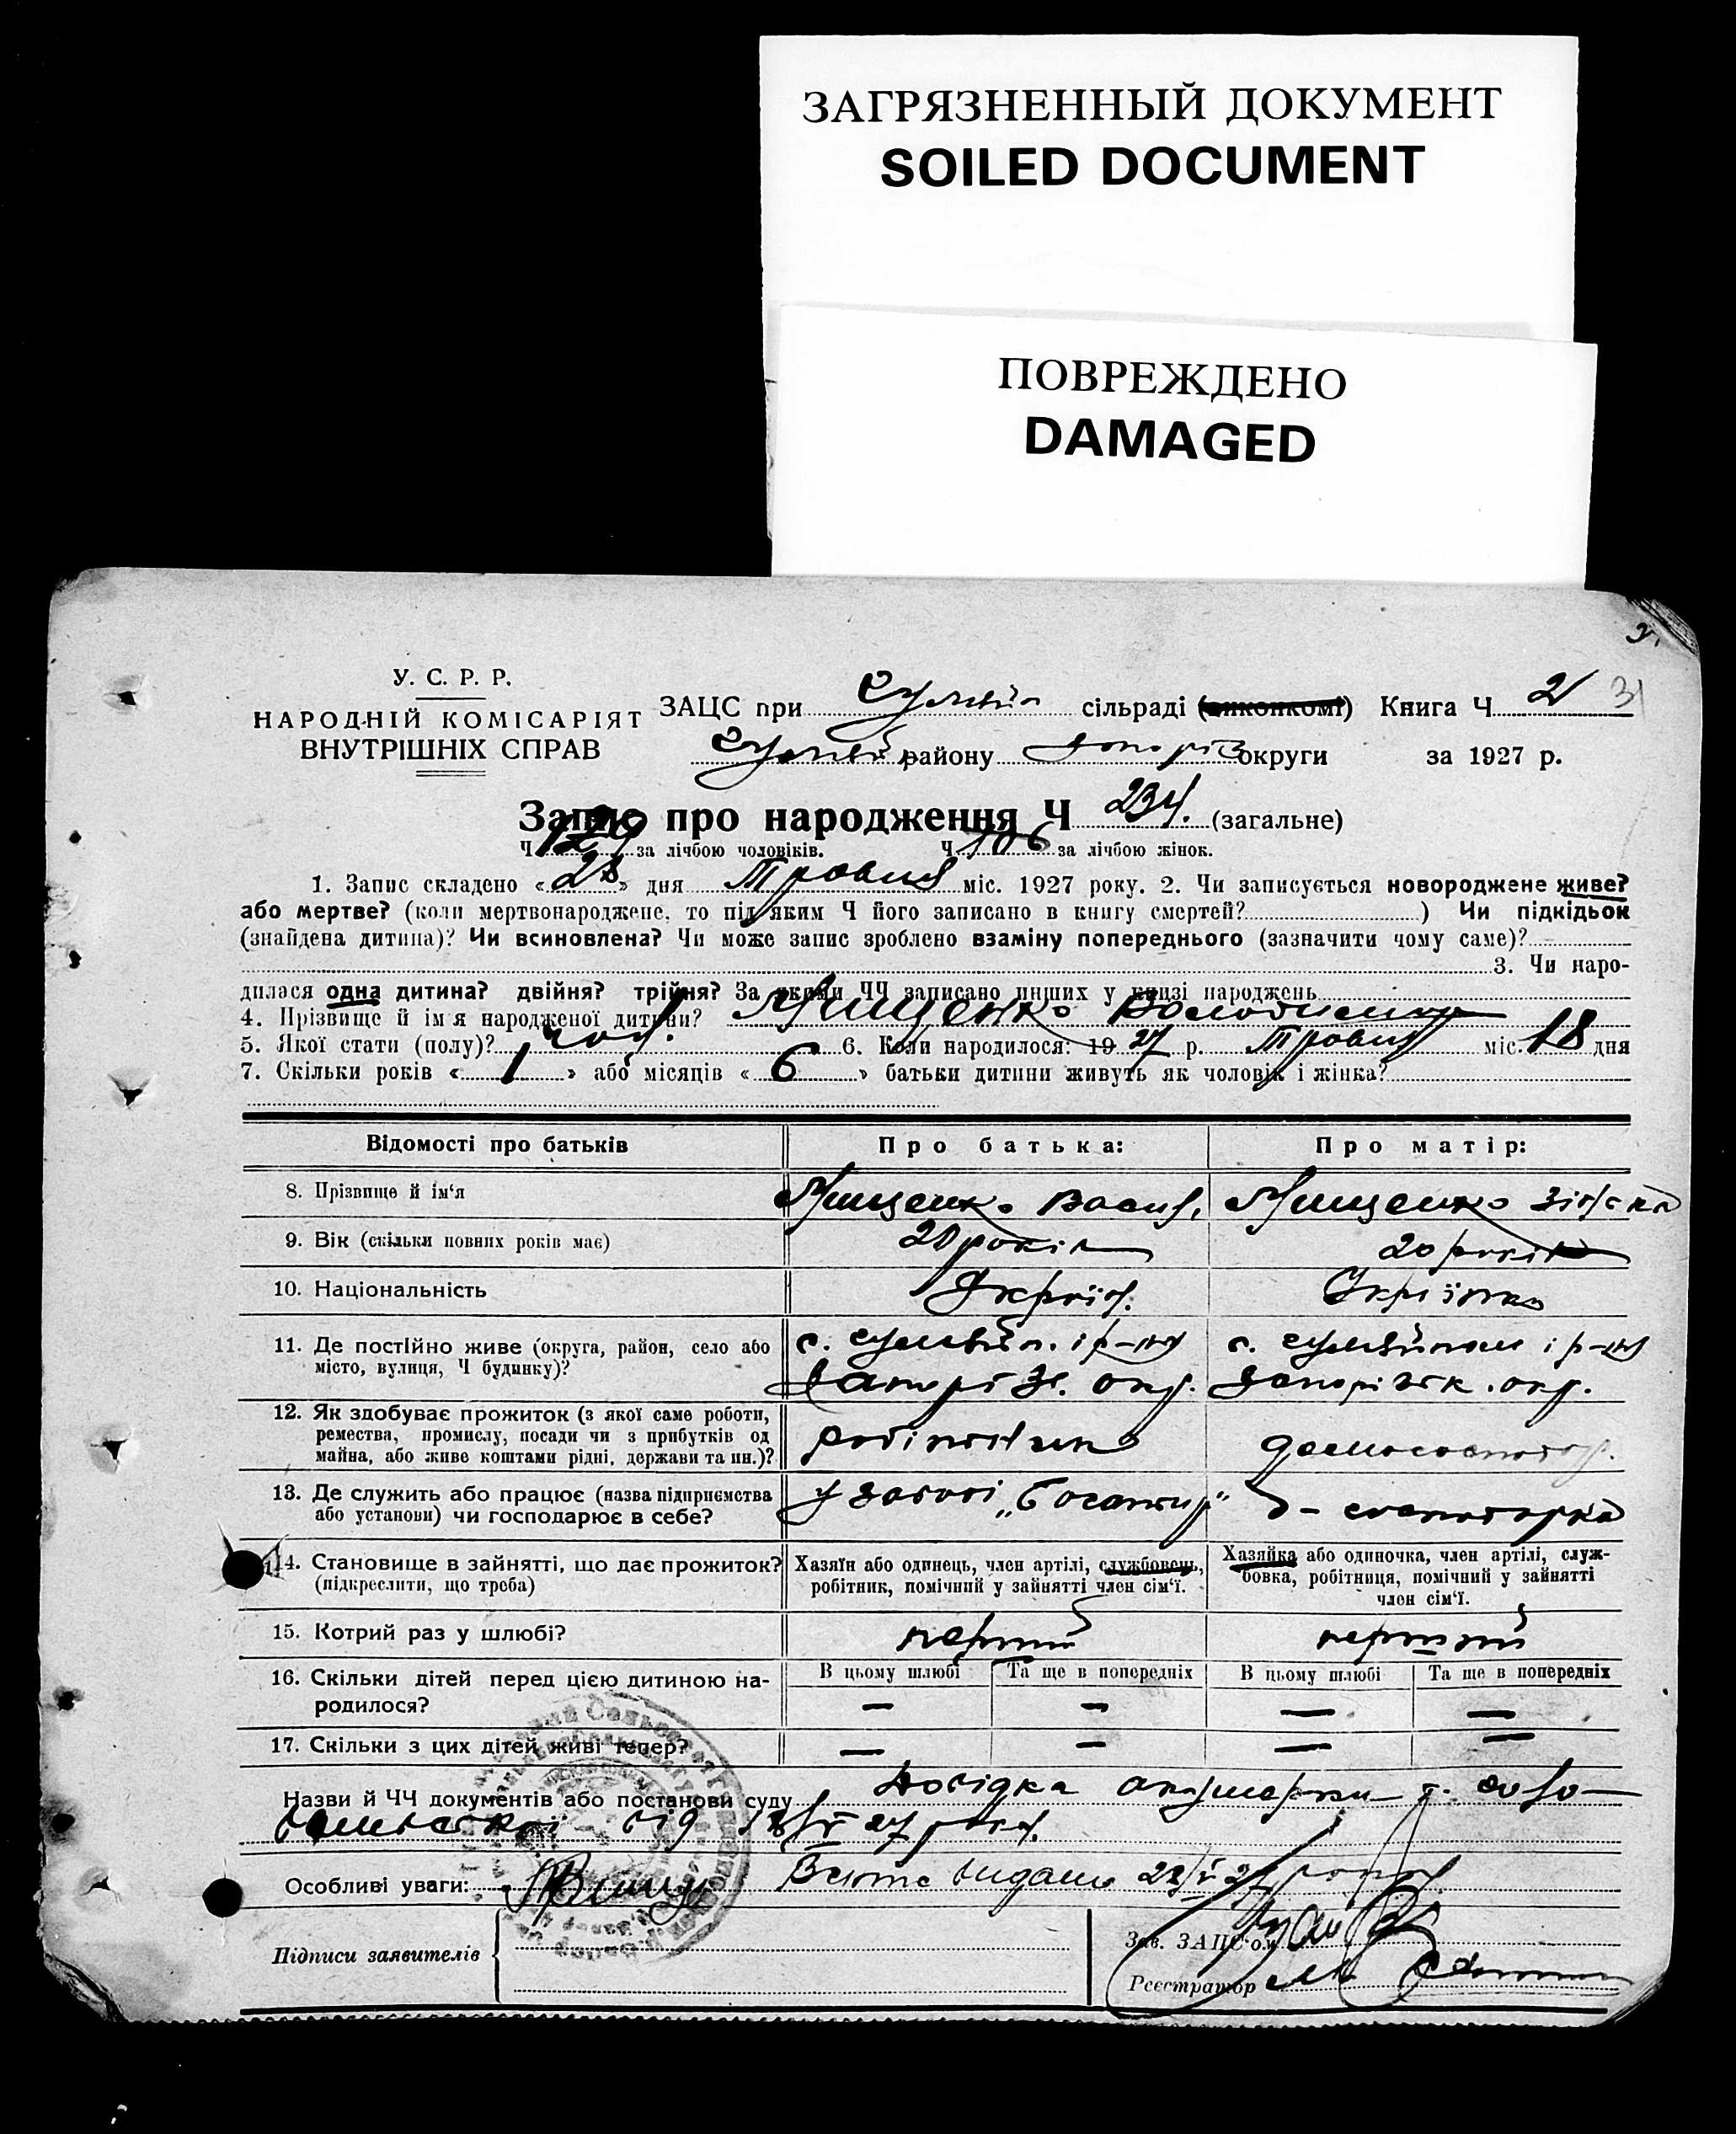 ЗАГРЯЗНЕННЫЙ ДОКУМЕНТ
SOILED DOCUMENT
ПОВРЕЖДЕНО
DAMAGED
У. С. Р. Р.
НАРОДНІЙ КОМІСАРІЯТ
ВНУТРІШНІХ СПРАВ
ЗАЦС при сільраді (виконкомі) Книга Ч 2 31
району округи за 1927 р.
Запис про народження Ч 234. (загальне)
Ч 129 за лічбою чоловіків. Ч 106 за лічбою жінок.
1. Запис складено « 28 » дня Травня міс. 1927 року. 2. Чи записується новороджене живе?
або мертве? (коли мертвонароджене, то під яким Ч його записано в книгу смертей? ) Чи підкідьок
(знайдена дитина)? Чи всиновлена? Чи може запис зроблено взаміну попереднього (зазначити чому саме)?
3. Чи наро-
дилася одна дитина? двійня? трійня? За якими ЧЧ записано инших у книзі народжень
4. Прізвище й ім'я народженої дитини? Мищенко Володимир
5. Якої стати (полу)? чол. 6. Коли народилося: 1927 р. Травня міс. 18 дня
7. Скільки років « 1 » або місяців « 6 » батьки дитини живуть як чоловік і жінка?
Відомості про батьків Про батька: Про матір:
8. Прізвище й ім'я Мищенко Васил. Мищенко
9. Вік (скільки повних років має) років 20 років
10. Національність Українка
11. Де постійно живе (округа, район, село або
місто, вулиця, Ч будинку)? с. і р-ну с. і р-ну
Запоріз. окр. Запорізьк. окр.
12. Як здобуває прожиток (з якої саме роботи,
ремества, промислу, посади чи з прибутків од
майна, або живе коштами рідні, держави та ин.)? домогосподар.
13. Де служить або працює (назва підприємства
або установи) чи господарює в себе? у заводі „Богатир" д-господарка
14. Становище в зайнятті, що дає прожиток?
(підкреслити, що треба)
Хазяїн або одинець, член артілі, службовець,
робітник, помічний у зайнятті член сім'ї.
Хазяйка або одиночка, член артілі, служ-
бовка, робітниця, помічний у зайнятті
член сім'ї.
15. Котрий раз у шлюбі? перший перший
16. Скільки дітей перед цією дитиною на-
родилося?
В цьому шлюбі Та ще в попередніх В цьому шлюбі Та ще в попередніх
— — — —
17. Скільки з цих дітей живі тепер? — — — —
Назви й ЧЧ документів або постанови суду Довідка акушерки
від 18/V 27 року.
Особливі уваги: видано 28/V 27 року
Підписи заявителів
Зав. ЗАЦС'ом
Реєстратор